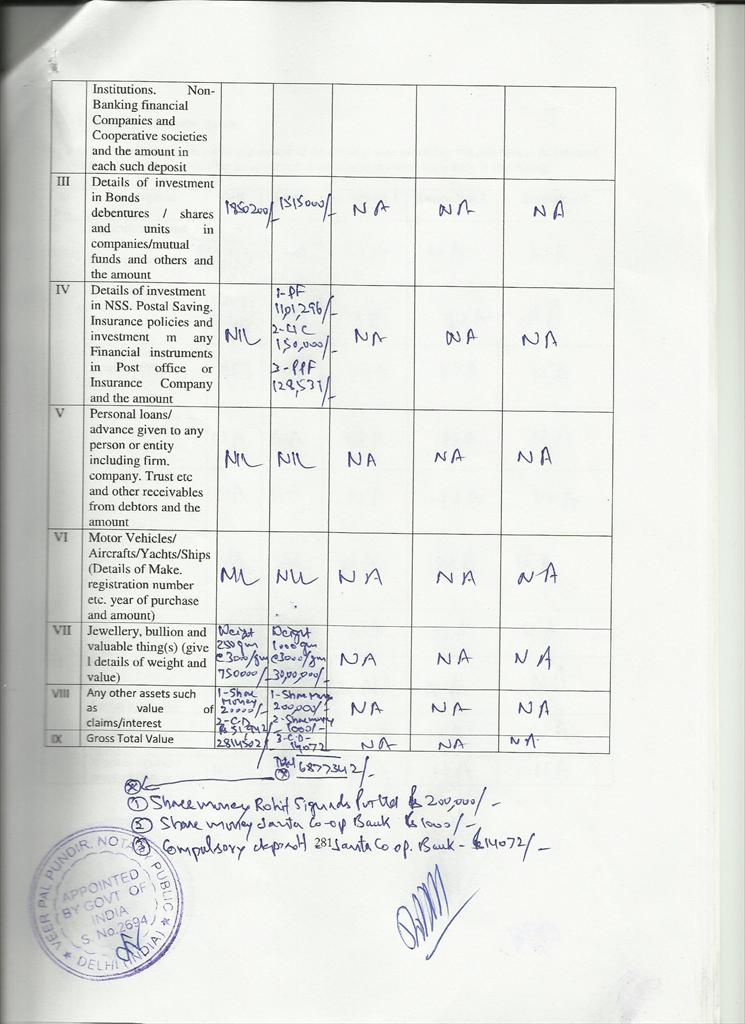 Institutions. Non-
Banking financial
Companies and
Cooperative societies
and the amount in
each such deposit
III Details of investment
in Bonds
debentures / shares
and units in
companies/mutual
funds and others and
the amount
1850200/- 1515000/- NA NA NA
IV Details of investment
in NSS. Postal Saving.
Insurance policies and
investment m any
Financial instruments
in Post office or
Insurance Company
and the amount
NIL
1-PF
1101,296/-
2-LIC
150,000/-
3-PPF
128,531/-
NA NA NA
V Personal loans/
advance given to any
person or entity
including firm.
company. Trust etc
and other receivables
from debtors and the
amount
NIL NIL NA NA NA
VI Motor Vehicles/
Aircrafts/Yachts/Ships
(Details of Make.
registration number
etc. year of purchase
and amount)
NIL NIL NA NA NA
VII Jewellery, bullion and
valuable thing(s) (give
l details of weight and
value)
Weight
250 gm
@3000/gm
750000/-
Weight
1000 gm
@3000/gm
30,00,000/-
NA NA NA
VIII Any other assets such
as value of
claims/interest
1-Share
Money
2-C.D
1-Share Money
200,000/-
2-Share money
1000/-
3-C.D-
14072
NA NA NA
IX Gross Total Value
2814502/- NA NA NA
Total 6877342/-
① Share money Rohit Signals Pvt Ltd Rs 200,000/-
② Share money Janta Co-op Bank Rs 1000/-
③ Compulsory deposit 281 Janta Co op. Bank - Rs 14072/-
VEER PAL PUNDIR, NOTARY PUBLIC
APPOINTED
BY GOVT OF
INDIA
S. No.2694
DELHI (INDIA)